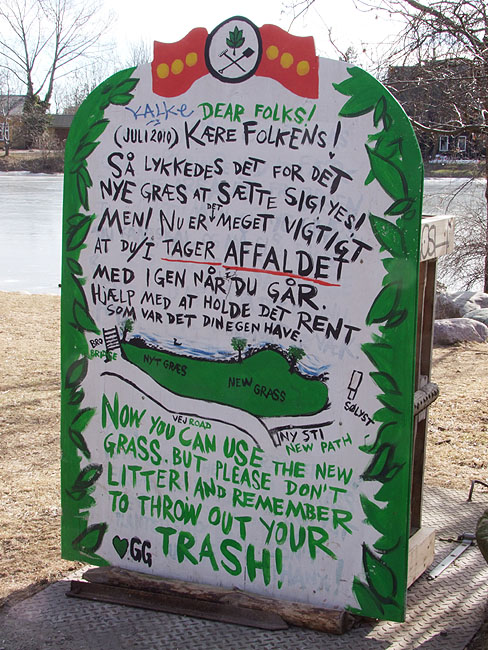 KALKE DEAR FOLKS!
(JULI 2010) KÆRE FOLKENS!
SÅ LYKKEDES DET FOR DET
NYE GRÆS AT SÆTTE SIG! YES!
MEN! NU ER DET MEGET VIGTIGT.
AT DU/I TAGER AFFALDET
MED IGEN NÅR I/DU GÅR.
HJÆLP MED AT HOLDE DET RENT
SOM VAR DET DIN EGEN HAVE.
BRO
BRIDGE
NYT GRÆS
NEW GRASS
SØLYST
VEJ ROAD
NY STI
NEW PATH
NOW YOU CAN USE THE NEW
GRASS. BUT PLEASE DON'T
LITTER! AND REMEMBER
TO THROW OUT YOUR
TRASH!
GG